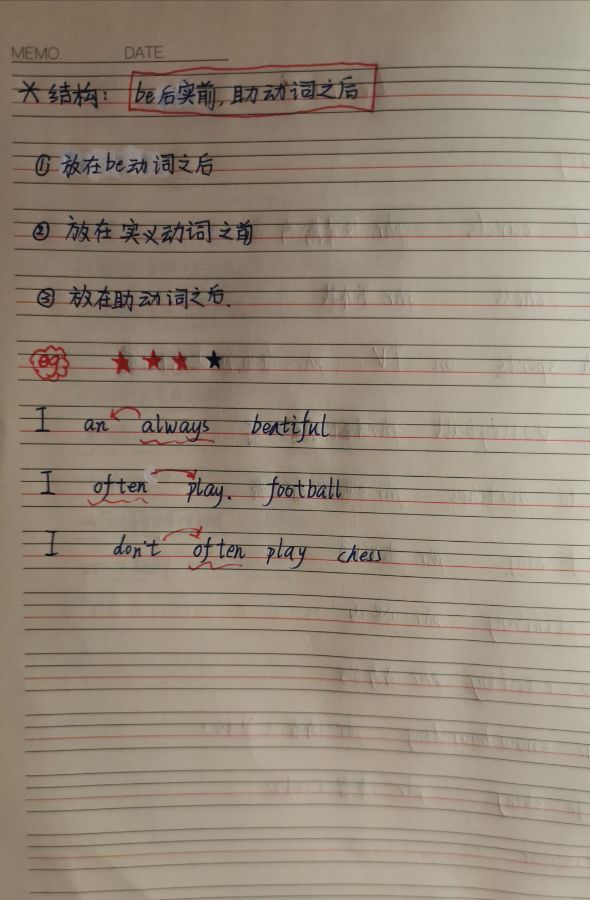 MEMO. DATE.
* 结构: be后实前,助动词之后
① 放在be动词之后
② 放在实义动词之前
③ 放在助动词之后.
eg
I an always beatiful
I often play. football
I don't often play chess